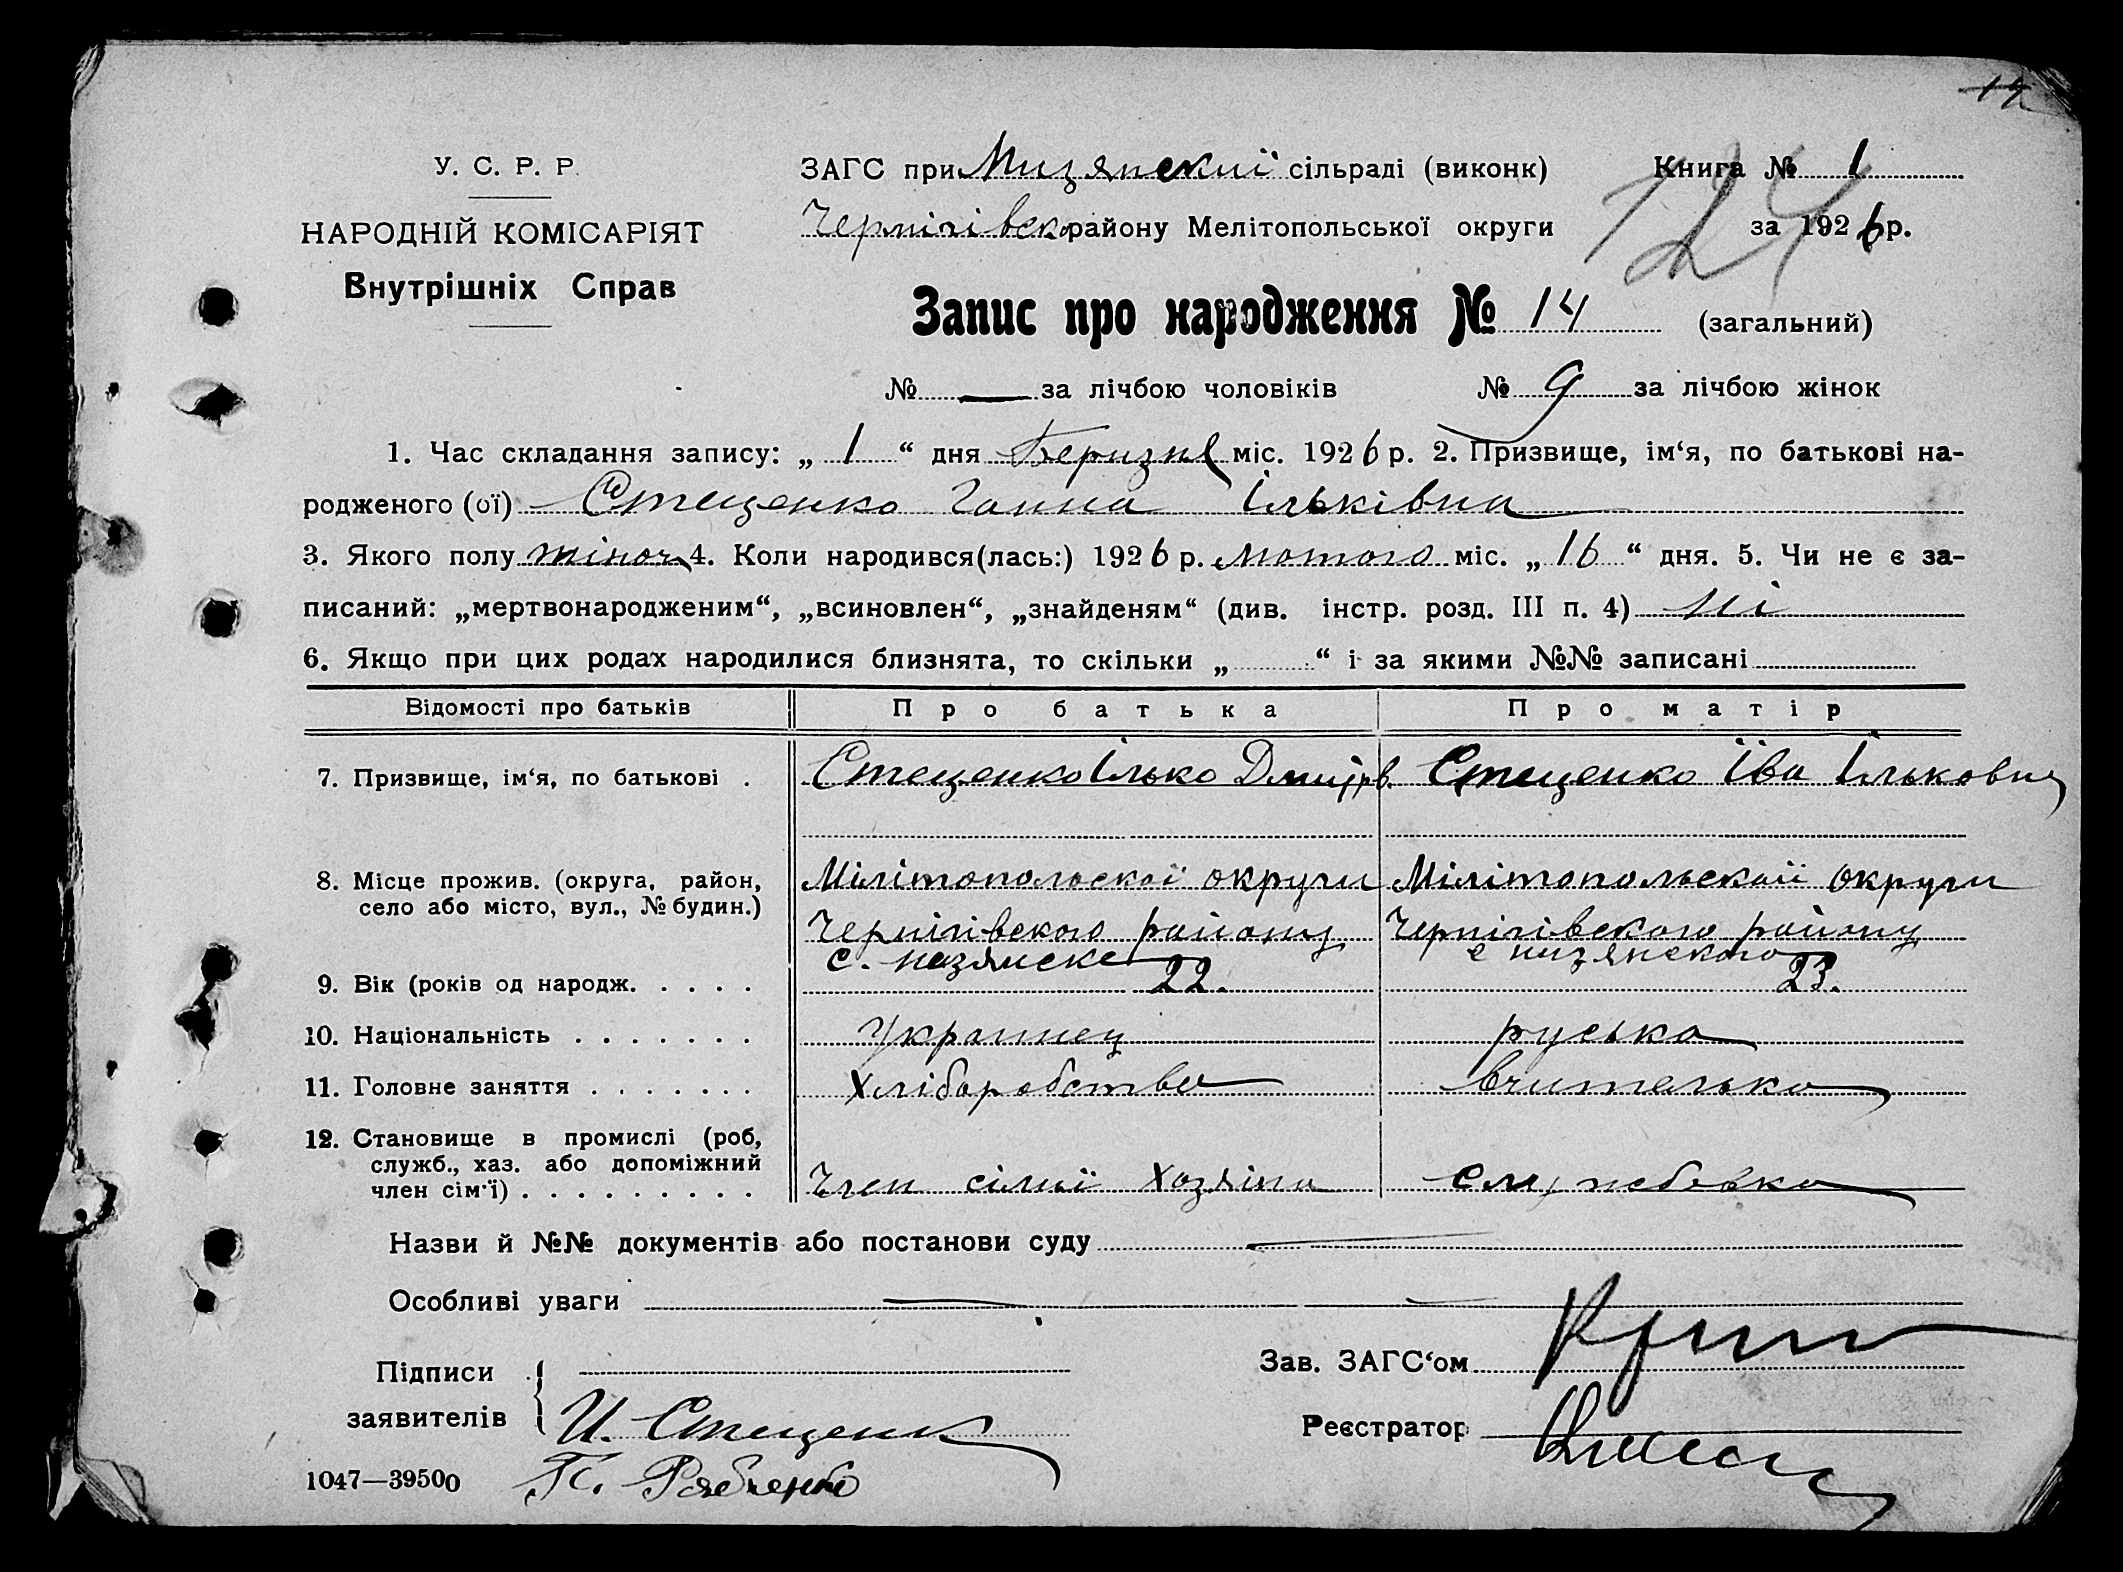 14
У. С. Р. Р.
НАРОДНІЙ КОМІСАРІЯТ
Внутрішніх Справ
ЗАГС при сільраді (виконк) Книга № 1
Чернігівско району Мелітопольської округи за 1926 р.
124
Запис про народження № 14 (загальний)
№ — за лічбою чоловіків № 9 за лічбою жінок
1. Час складання запису: „ 1 “ дня Беризня міс. 1926 р. 2. Призвище, ім‘я, по батькові на-
родженого (ої) Стеценко Ганна Ільківна
3. Якого полу жіноч 4. Коли народився(лась:) 1926 р. лютого міс. „ 16 “ дня. 5. Чи не є за-
писаний: „мертвонародженим“, „всиновлен“, „знайденям“ (див. інстр. розд. III п. 4) ні
6. Якщо при цих родах народилися близнята, то скільки „ “ і за якими №№ записані
Відомості про батьків Про батька Про матір
7. Призвище, ім‘я, по батькові . Стеценко Ілько Дмитрв. Стеценко Їва Ільковна
8. Місце прожив. (округа, район, Мілітопольскої округи Мілітопольскоїї округи
село або місто, вул., № будин.)
Чернігівского району Чернігівского району
9. Вік (років од народж. . . . . 22. 23.
10. Національність . . . . . . . Украинец руська
11. Головне заняття . . . . . . . Хліборобство вчителька
12. Становище в промислі (роб,
служб., хаз. або допоміжний
член сім‘ї) . . . . . . . . . Член сімї хазяіна службовка
Назви й №№ документів або постанови суду —
Особливі уваги — —
Підписи Зав. ЗАГС‘ом
заявителів И. Стеценко Реєстратор
1047—39500 Рябченко